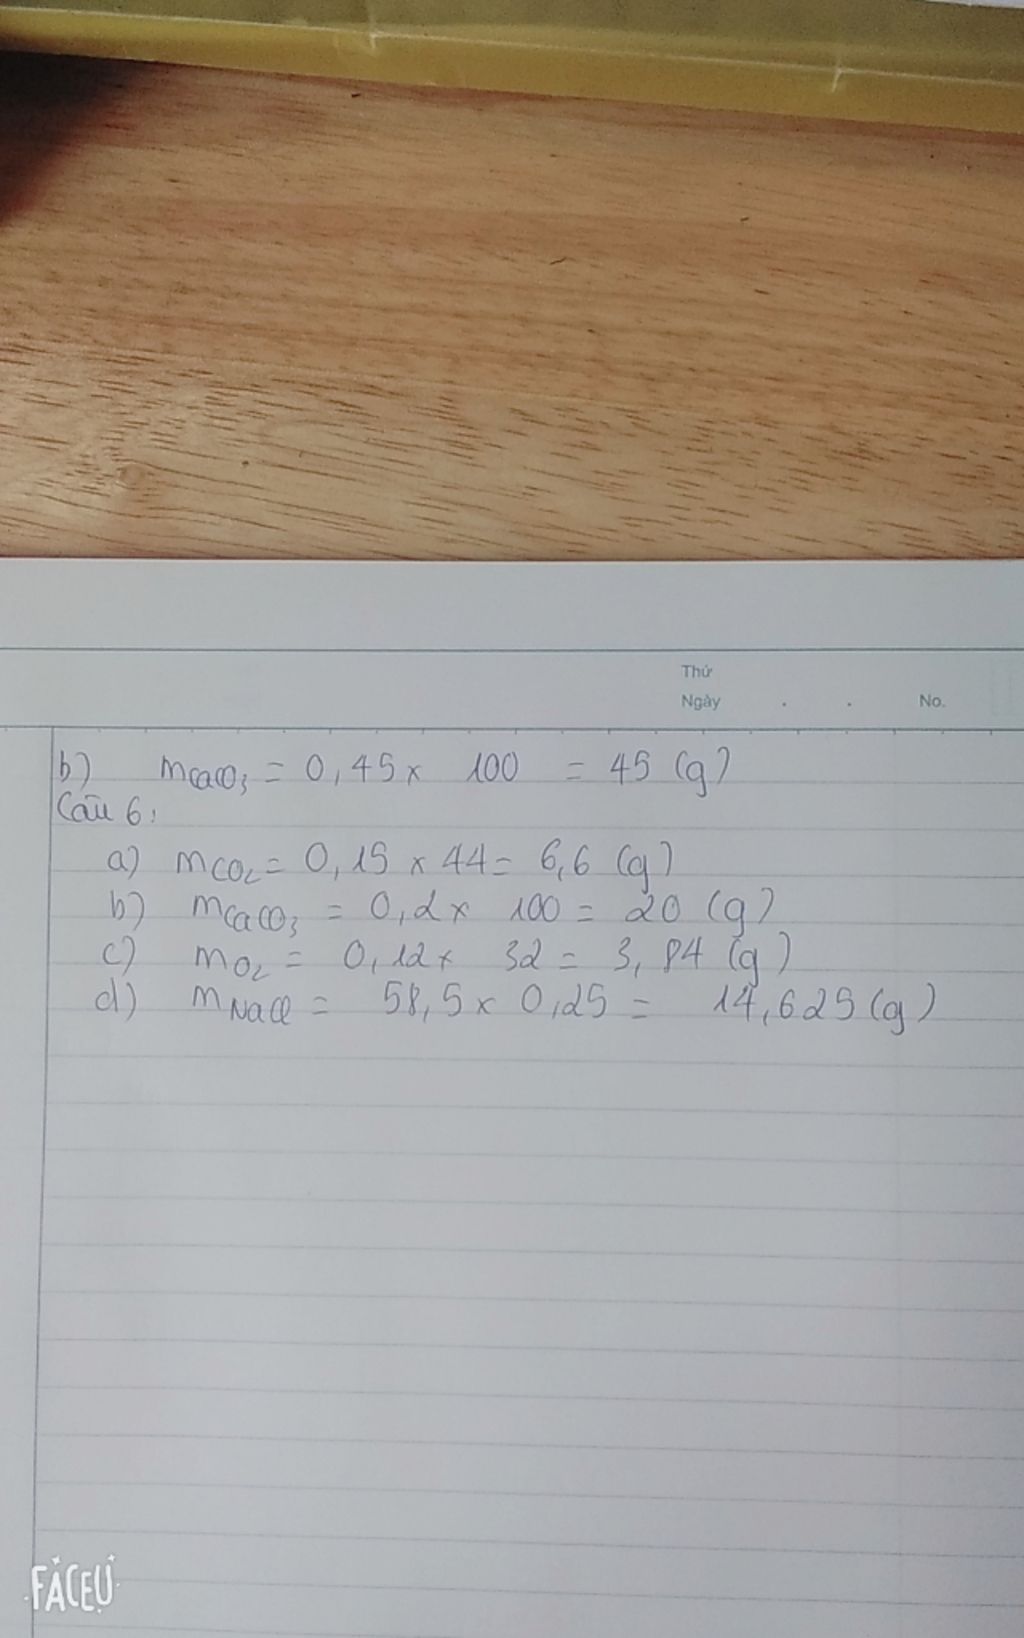 Thứ
Ngày . . No.
b) mCaCO₃ = 0,45 x 100 = 45 (g)
Câu 6:
a) mCO₂ = 0,15 x 44 = 6,6 (g)
b) mCaCO₃ = 0,2 x 100 = 20 (g)
c) mO₂ = 0,12 x 32 = 3,84 (g)
d) mNaCl = 58,5 x 0,25 = 14,625 (g)
FACEU